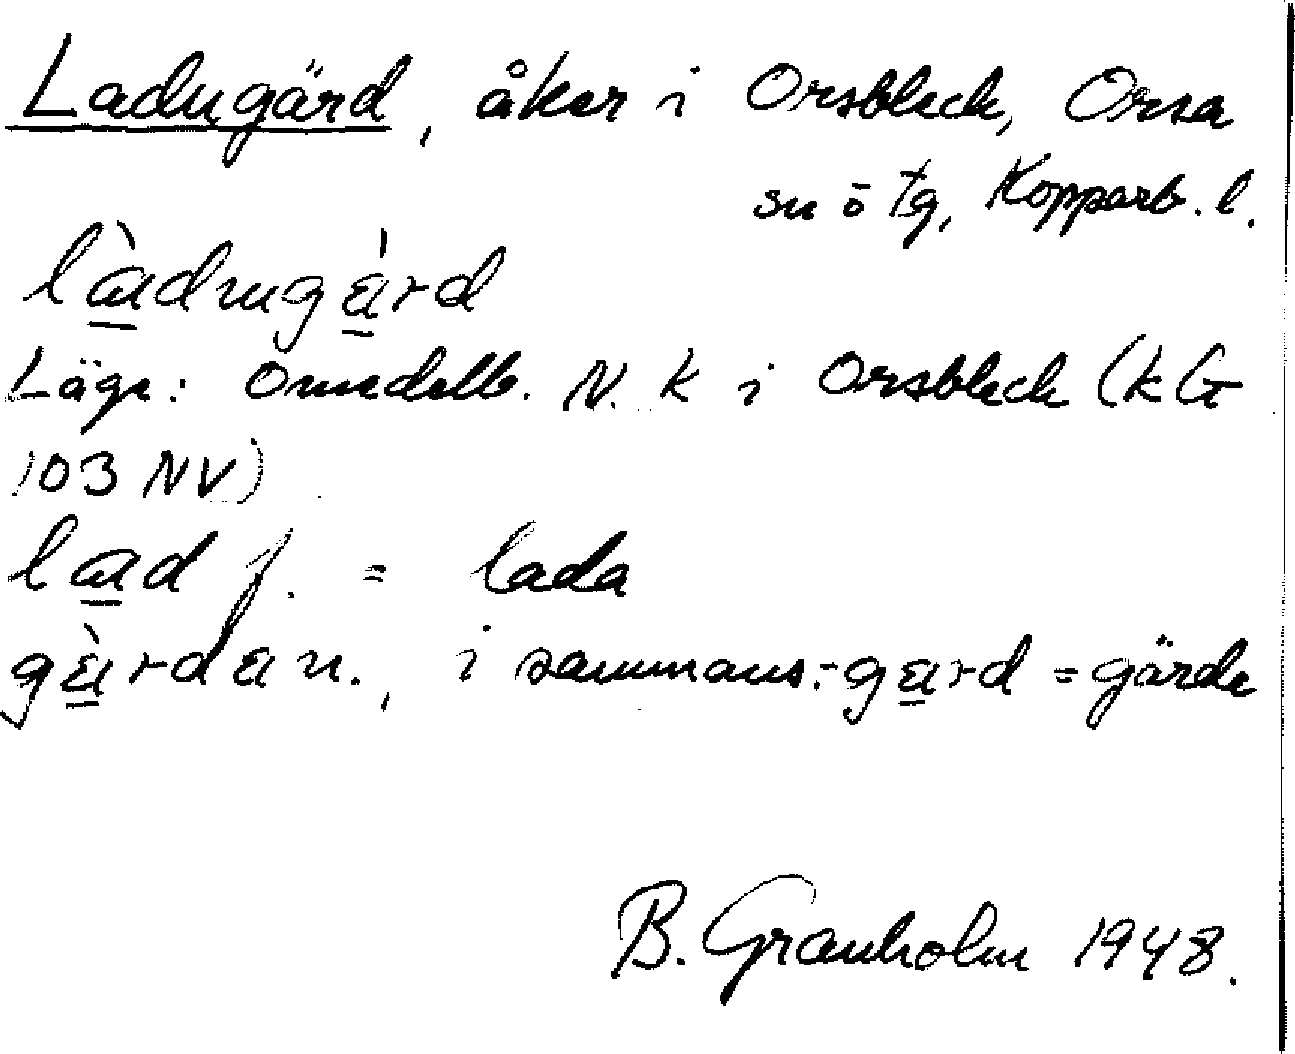 Ladugärd, åker i Orsbleck, Orsa
sn ö tg, Kopparb. l.
làdugàrd
Läge: Omedelb. N. k i Orsbleck (kG
103 NV)
lad f. = lada
gàrda n., i sammans:-gard = gärde
B. Granholm 1948.